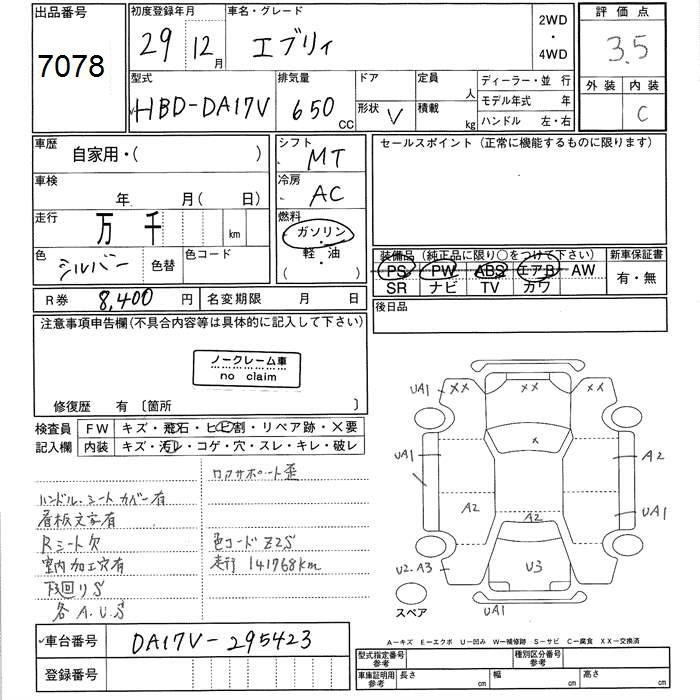 出品番号
7078
初度登録年月
29 12月
車名・グレード
エブリィ
2WD
・
4WD
評価点
3.5
型式
HBD-DA17V
排気量
650 CC
ドア
形状 V
定員 人
積載 kg
ディーラー・並 行
モデル年式 年
ハンドル 左・右
外装 内装
C
車歴 自家用・( )
シフト MT
セールスポイント (正常に機能するものに限ります)
車検 年 月(日)
冷房 AC
走行 万 千 km
燃料 ガソリン・
( 軽・油 )
色 シルバー 色替 色コード
装備品 (純正品に限り○をつけて下さい) 新車保証書
PS PW ABS エアB AW 有・無
SR ナビ TV カワ
R券 8,400 円 名変期限 月 日
後日品
注意事項申告欄(不具合内容等は具体的に記入して下さい)
ノークレーム車
no claim
修復歴 有 〔箇所 〕
検査員 FW キズ・飛石・ヒビ割・リペア跡・×要
記入欄 内装 キズ・汚レ・コゲ・穴・スレ・キレ・破レ
ロアサポート歪
ハンドル・シートカバー有
看板文字有
Rシート欠
色コード Z2S
室内加工穴有
走行 141768km
下回りS
各A.U.S
UA1 XX XX XX
X
UA1 A2
A2 A2 UA1
U2.A3 U3
スペア UA1
車台番号 DA17V-295423
登録番号
A-キズ E-エクボ U-凹み W-補修跡 S-サビ C-腐食 XX-交換済
型式指定番号 参考 種別区分番号 参考
車庫証明用 参考 長さ cm 幅 cm 高さ cm